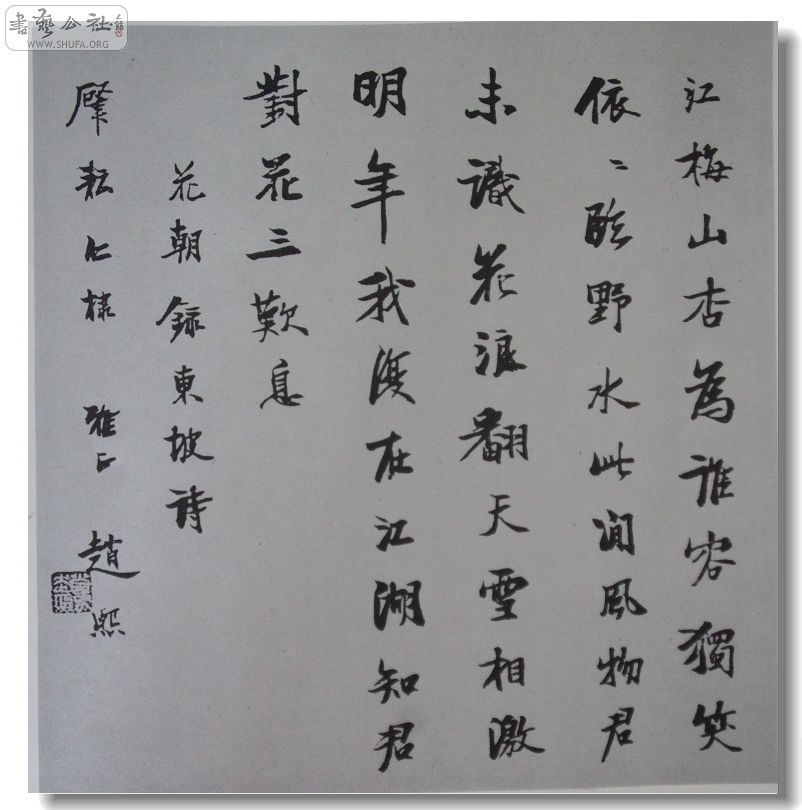 書藝公社
WWW.SHUFA.ORG
江梅山杏為誰容獨笑
依〻臨野水此間風物君
未識花浪翻天雪相激
明年我復在江湖知君
對花三歎息
花朝錄東坡詩
耘仁棣 雅正 趙熙